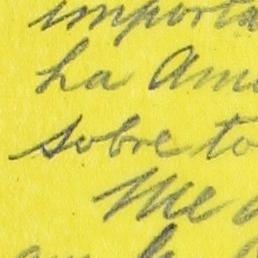 importa
ha Ame
sobre to
Me